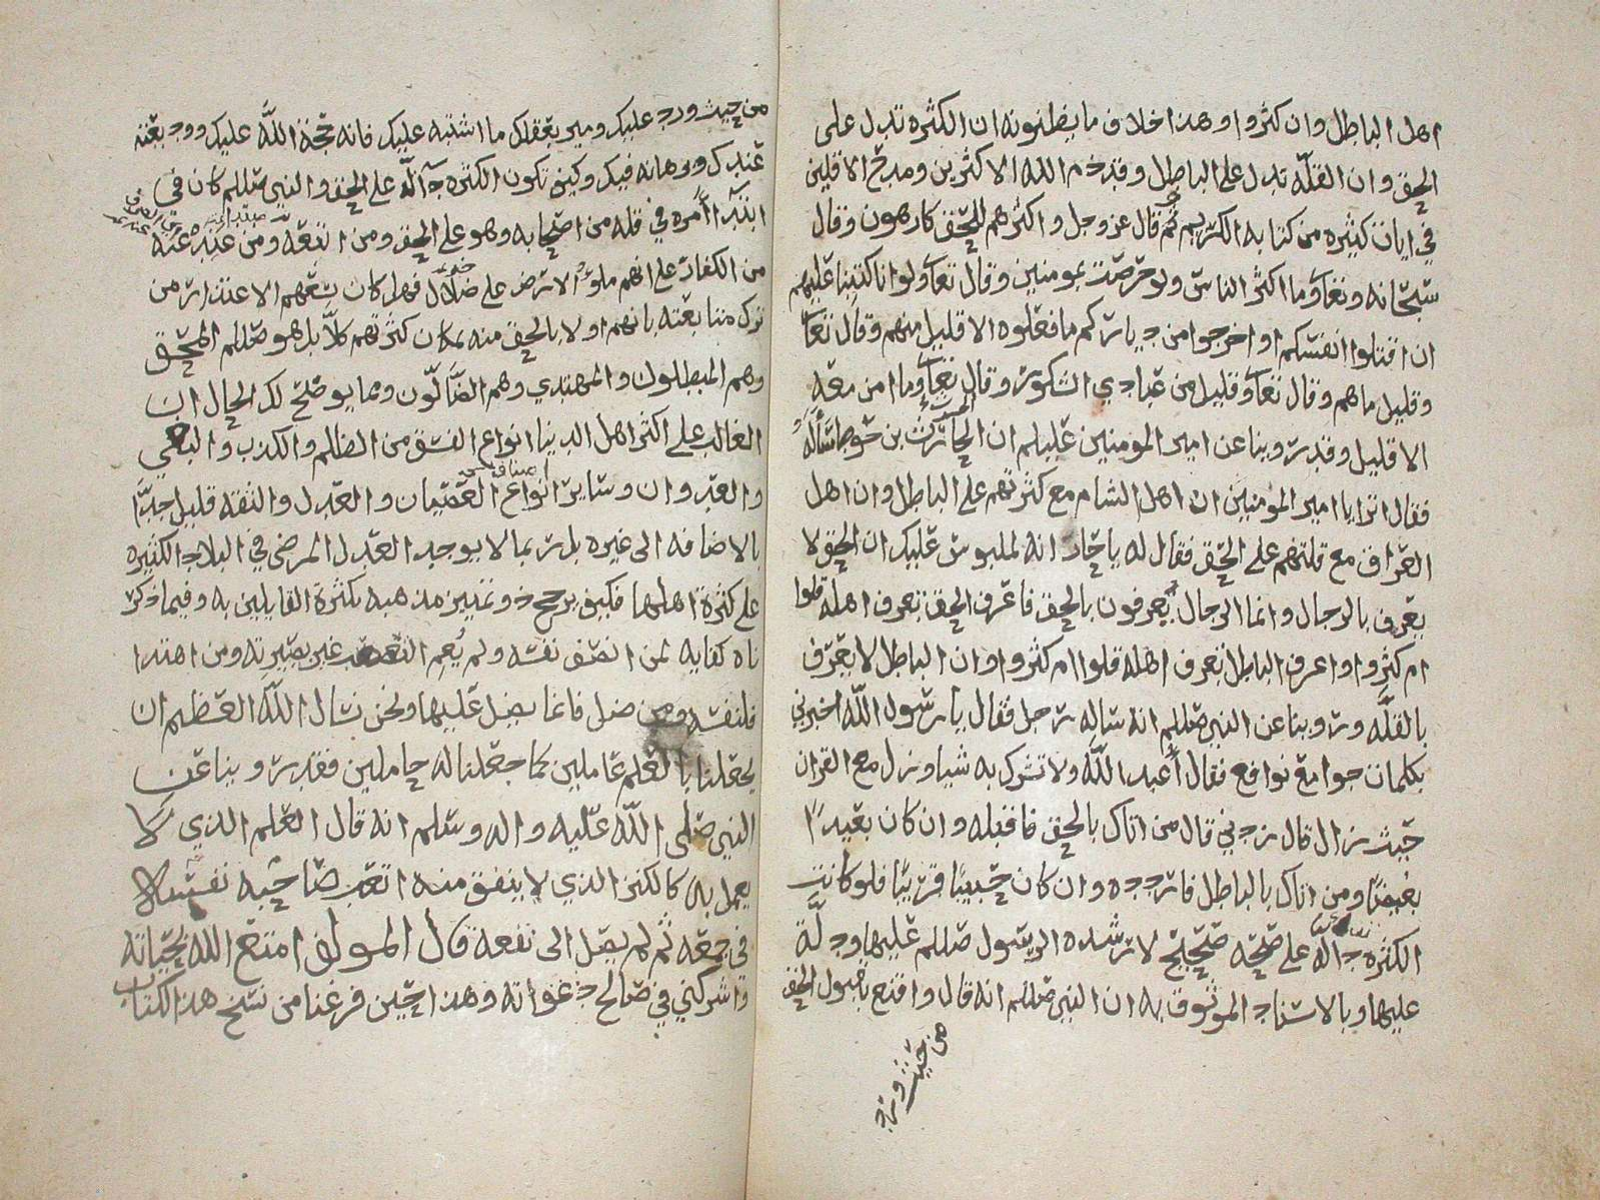 اهل الباطل وان كثروا وهذا خلاف ما يظنونه ان الكثره تدل على
الحق وان القله تدل على الباطل وقد ذم الله الاكثرين ومدح الاقلين
في ايات كثيره من كتابه الكريم ثم قال عز وجل واكثرهم للحق كارهون وقال
سبحانه وتعا وما اكثر الناس ولو حرصت بمومنين وقال تعا ولو انا كتبنا عليهم
ان اقتلوا انفسكم او اخرجوا من دياركم ما فعلوه الا قليل منهم وقال تعا
وقليل ما هم وقال تعا وقليل من عبادي الشكور وقال تعا وما امن معه
الا قليل وقد روينا عن امير المومنين عليلم ان الحارث بن حوط سأله
فقال اترا يا امير المومنين ان اهل الشام مع كثرتهم على الباطل وان اهل
العراق مع قلتهم على الحق فقال له يا حار انه لملبوس عليك ان الحق لا
يعرف بالرجال وانما الرجال يعرفون بالحق فاعرف الحق تعرف اهله قلوا
ام كثروا واعرف الباطل تعرف اهله قلوا ام كثروا وان الباطل لا يعرف
بالقله وروينا عن النبي صللم انه ساله رجل فقال يا رسول الله اخبرني
بكلمات جوامع نوافع فقال أعبد الله ولا تشرك به شيا وزل مع القران
حيث زال قال زدني قال من اتاك بالحق فاقبله وان كان بعيدًا
بغيضًا ومن اتاك بالباطل فاردده وان كان حبيبًا قريبًا فلو كانت
الكثره دالة على صحه لارشده الرسول صللم عليها ودله
عليها وبالاسناد الموثوق به ان النبي صللم انه قال واقنع بقبول الحق
من حيث ورد
من حيث ورد عليك وميز بعقلك ما اشتبه عليك فانه حجة الله عليك ووديعته
عندك وبرهانه فيك وكيف تكون الكثره دآلة على الحق والنبي صللم كان في
ابتدآ أمره في قله من اصحابه وهو على الحق ومن اتبعه ومن عنده
من الكفار على انهم ملؤ الارض على ضلال فهل كان يسعهم الاعتذار من
ترك متابعته بانهم اولا بالحق منه لمكان كثرتهم كلا بل هو صللم المحق
وهم المبطلون والمهتدي وهم الضالون ومما يوضح لك الحال ان
الغالب على اكثر اهل الدنيا انواع الفسق من الظلم والكذب والبغي
والعدوان وساير أنواع العصيان والعدل والثقه قليل جدًا
بالاضافه الى غيره بل ربما لا يوجد العدل المرضى في البلاد الكثيره
على كثرة اهلها فكيف يرجح ذو تمييز مذهبه بكثرة القايلين به وفيما ذكر
ناه كفايه لمن انصف نفسه ولم يُعم التعصب عين بصيرته ومن اهتدا
فلنفسه ومن ضل فانما يضل عليها ونحن نسال الله العظيم ان
يجعلنا بالعلم عاملين كما جعلنا له حاملين فقد روينا عن
النبي صلى الله عليه واله وسلم انه قال العلم الذي لا
يعمل به كالكنز الذي لا ينفق منه اتعب صاحبه نفسه
في جمعه ثم لم يصل الى نفعه قال المولف امتع الله بحياته
واشركني في صالح دعواته وهذا حين فرغنا من نسخ هذا الكتاب